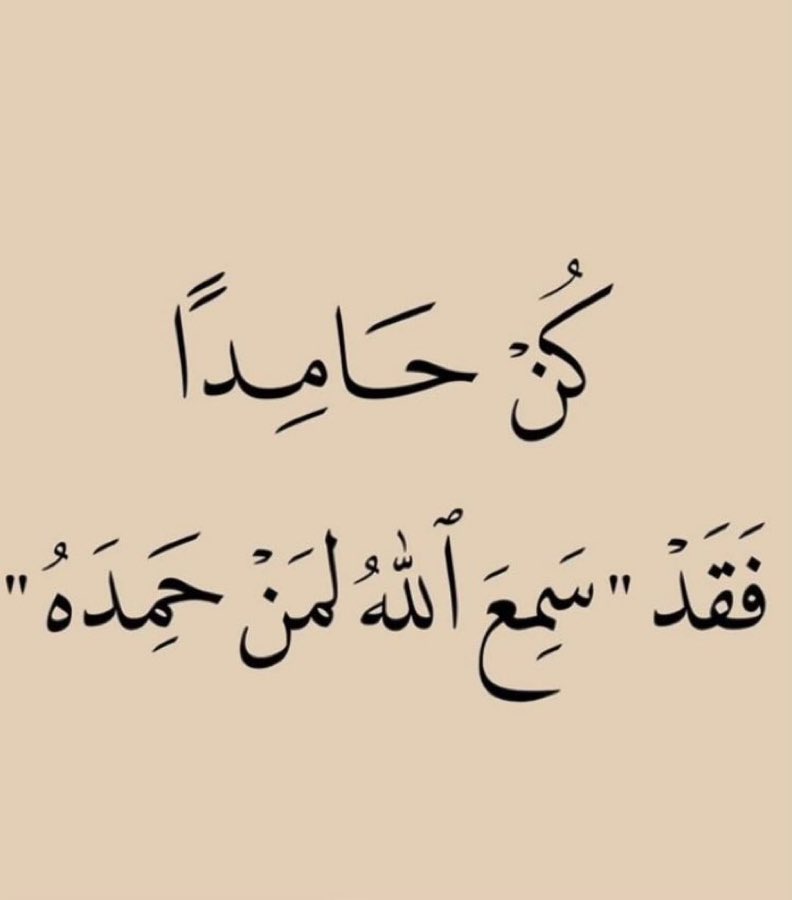 كُنْ حَامِدًا
فَقَدْ "سَمِعَ ٱللهُ لمَنْ حَمِدَهُ"